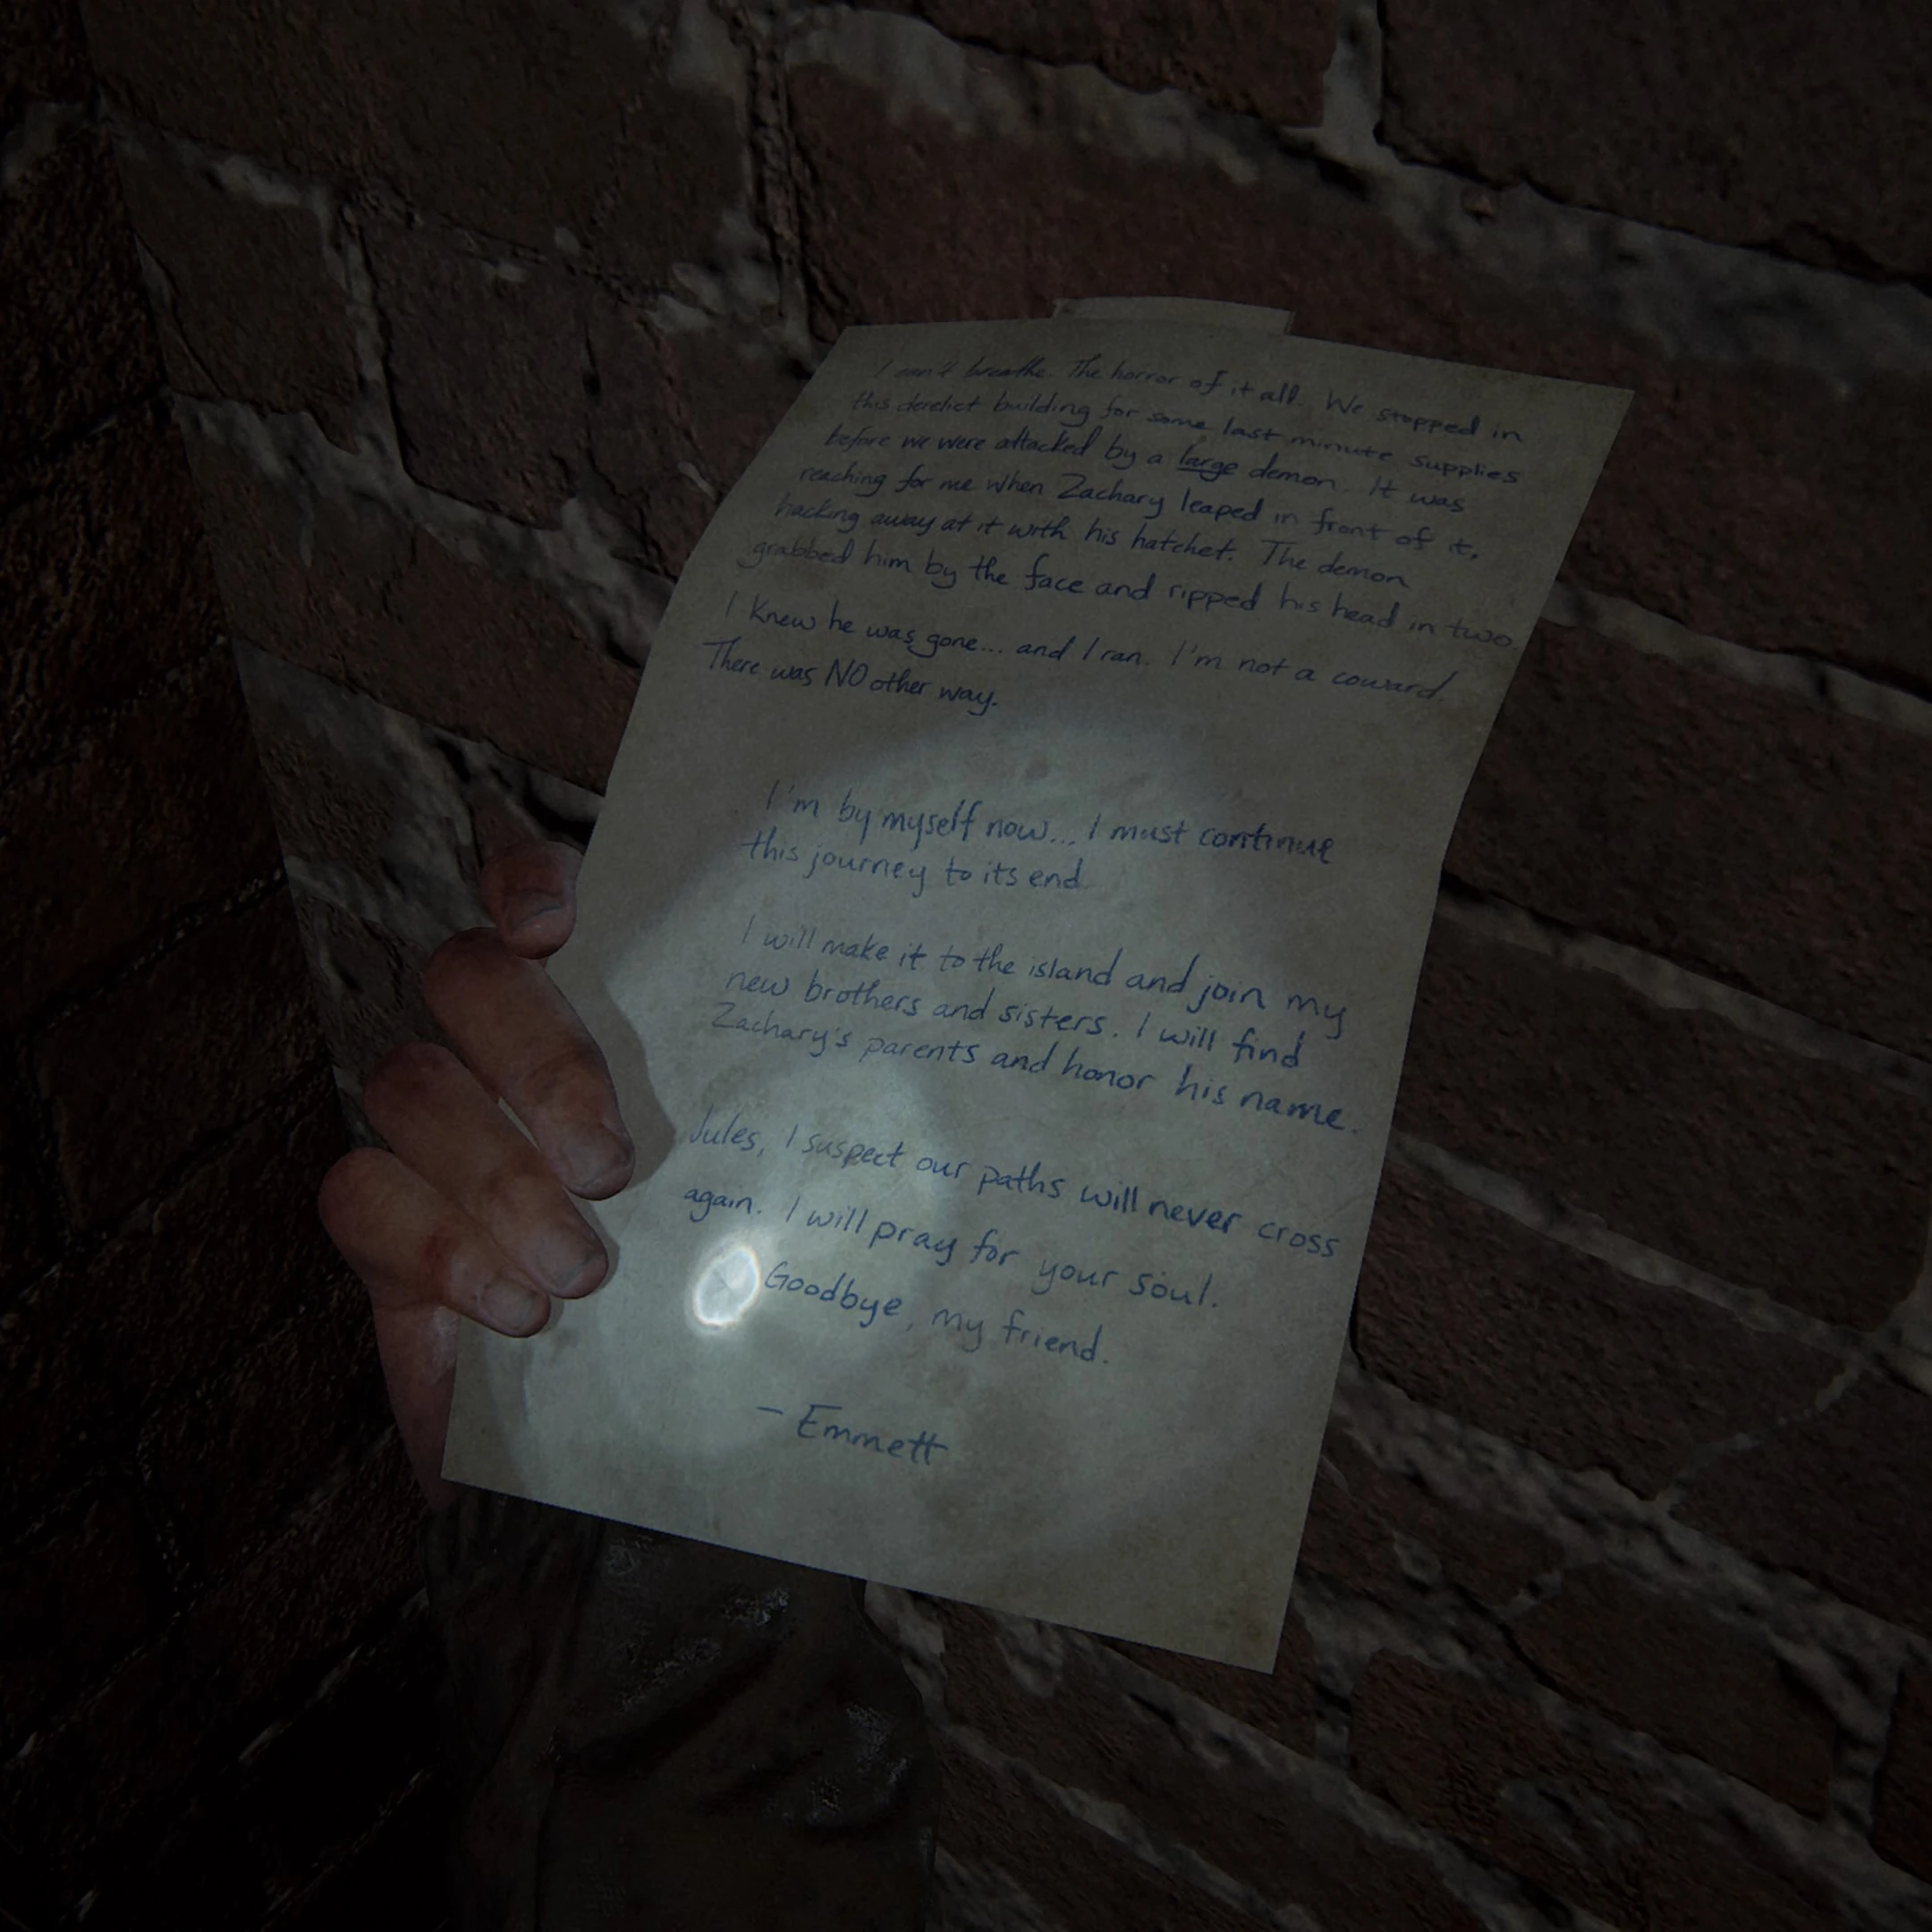 I can't breathe. The horror of it all. We stopped in
this derelict building for some last minute supplies
before we were attacked by a large demon. It was
reaching for me when Zachary leaped in front of it,
hacking away at it with his hatchet. The demon
grabbed him by the face and ripped his head in two.
I knew he was gone... and I ran. I'm not a coward.
There was NO other way.
I'm by myself now... I must continue
this journey to its end.
I will make it to the island and join my
new brothers and sisters. I will find
Zachary's parents and honor his name.
Jules, I suspect our paths will never cross
again. I will pray for your soul.
Goodbye, my friend.
- Emmett